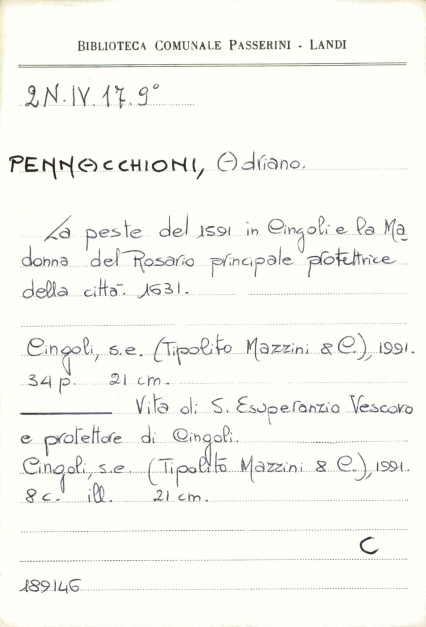 BIBLIOTECA COMUNALE PASSERINI - LANDI
2N.IV.17.9°
PENNACCHIONI, Adriano.
La peste del 1591 in Cingoli e la Ma
donna del Rosario principale protettrice
della città. 1631.
Cingoli, s.e. (Tipolito Mazzini & C.), 1991.
34 p. 21 cm.
Vita di S. Esuperanzio Vescovo
e protettore di Cingoli.
Cingoli, s.e. (Tipolito Mazzini & C.), 1991.
8 c. ill. 21 cm.
C
189146